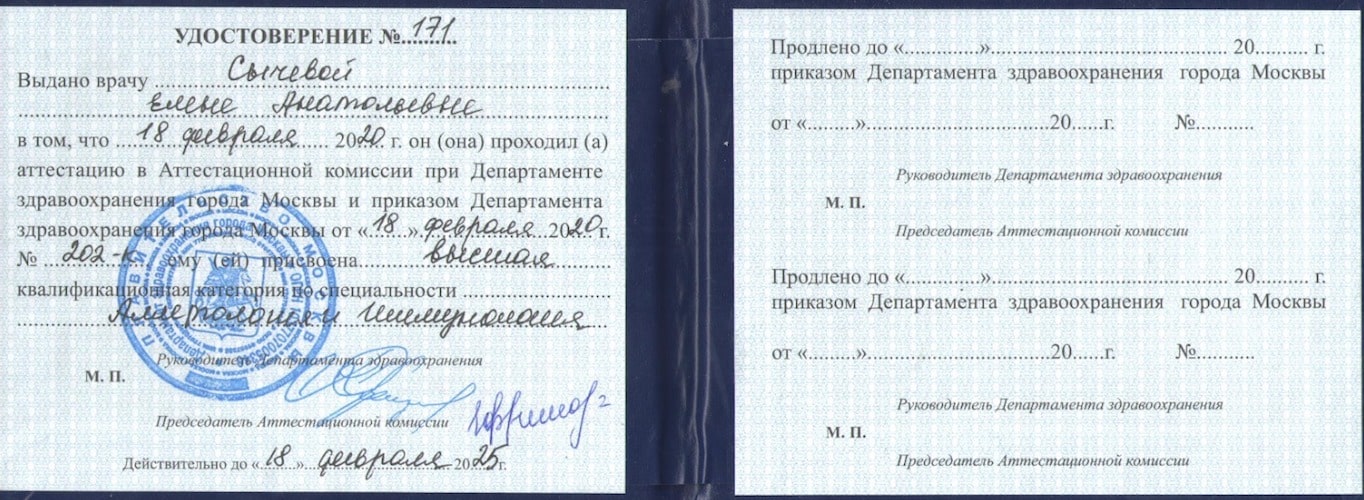 УДОСТОВЕРЕНИЕ №171
Выдано врачу Сычевой
Елене Анатольевне
в том, что 18 февраля 2020 г. он (она) проходил (а)
аттестацию в Аттестационной комиссии при Департаменте
здравоохранения города Москвы и приказом Департамента
здравоохранения города Москвы от «18» февраля 2020 г.
№ 202-к ему (ей) присвоена высшая
квалификационная категория по специальности
Аллергология и иммунология
Руководитель Департамента здравоохранения
М. П.
Председатель Аттестационной комиссии
Действительно до «18» февраля 2025 г.
Продлено до «..............»............................................ 20.......... г.
приказом Департамента здравоохранения города Москвы
от «.........»..................................20......г. №...........
Руководитель Департамента здравоохранения
М. П.
Председатель Аттестационной комиссии
Продлено до «..............»............................................ 20.......... г.
приказом Департамента здравоохранения города Москвы
от «.........»..................................20......г. №...........
Руководитель Департамента здравоохранения
М. П.
Председатель Аттестационной комиссии